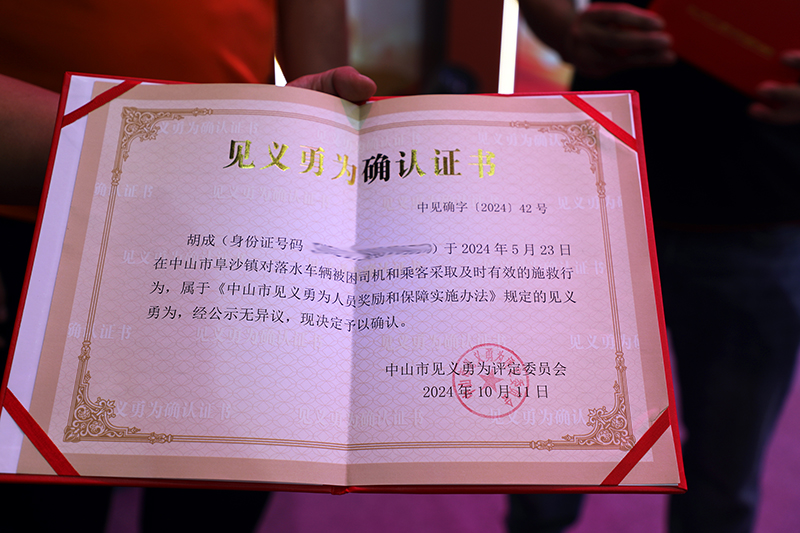 见义勇为确认证书
中见确字〔2024〕42号
胡成（身份证号码 ）于2024年5月23日
在中山市阜沙镇对落水车辆被困司机和乘客采取及时有效的施救行
为，属于《中山市见义勇为人员奖励和保障实施办法》规定的见义
勇为，经公示无异议，现决定予以确认。
中山市见义勇为评定委员会
2024年10月11日